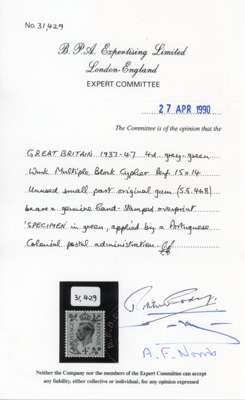 No. 31,429
B. P. A. Expertising Limited
London-England
EXPERT COMMITTEE
27 APR 1990
The Committee is of the opinion that the
GREAT BRITAIN 1937-47 4d. grey-green
Wmk Multiple Block Cypher Perf. 15 x 14
Unused small part original gum (S.G. 468)
bears a genuine hand-stamped overprint
'SPECIMEN in green, applied by a Portuguese
Colonial postal administration
31,429
A. F. Norris
Neither the Company nor the members of the Expert Committee can accept
any liability, either collective or individual, for any opinion expressed